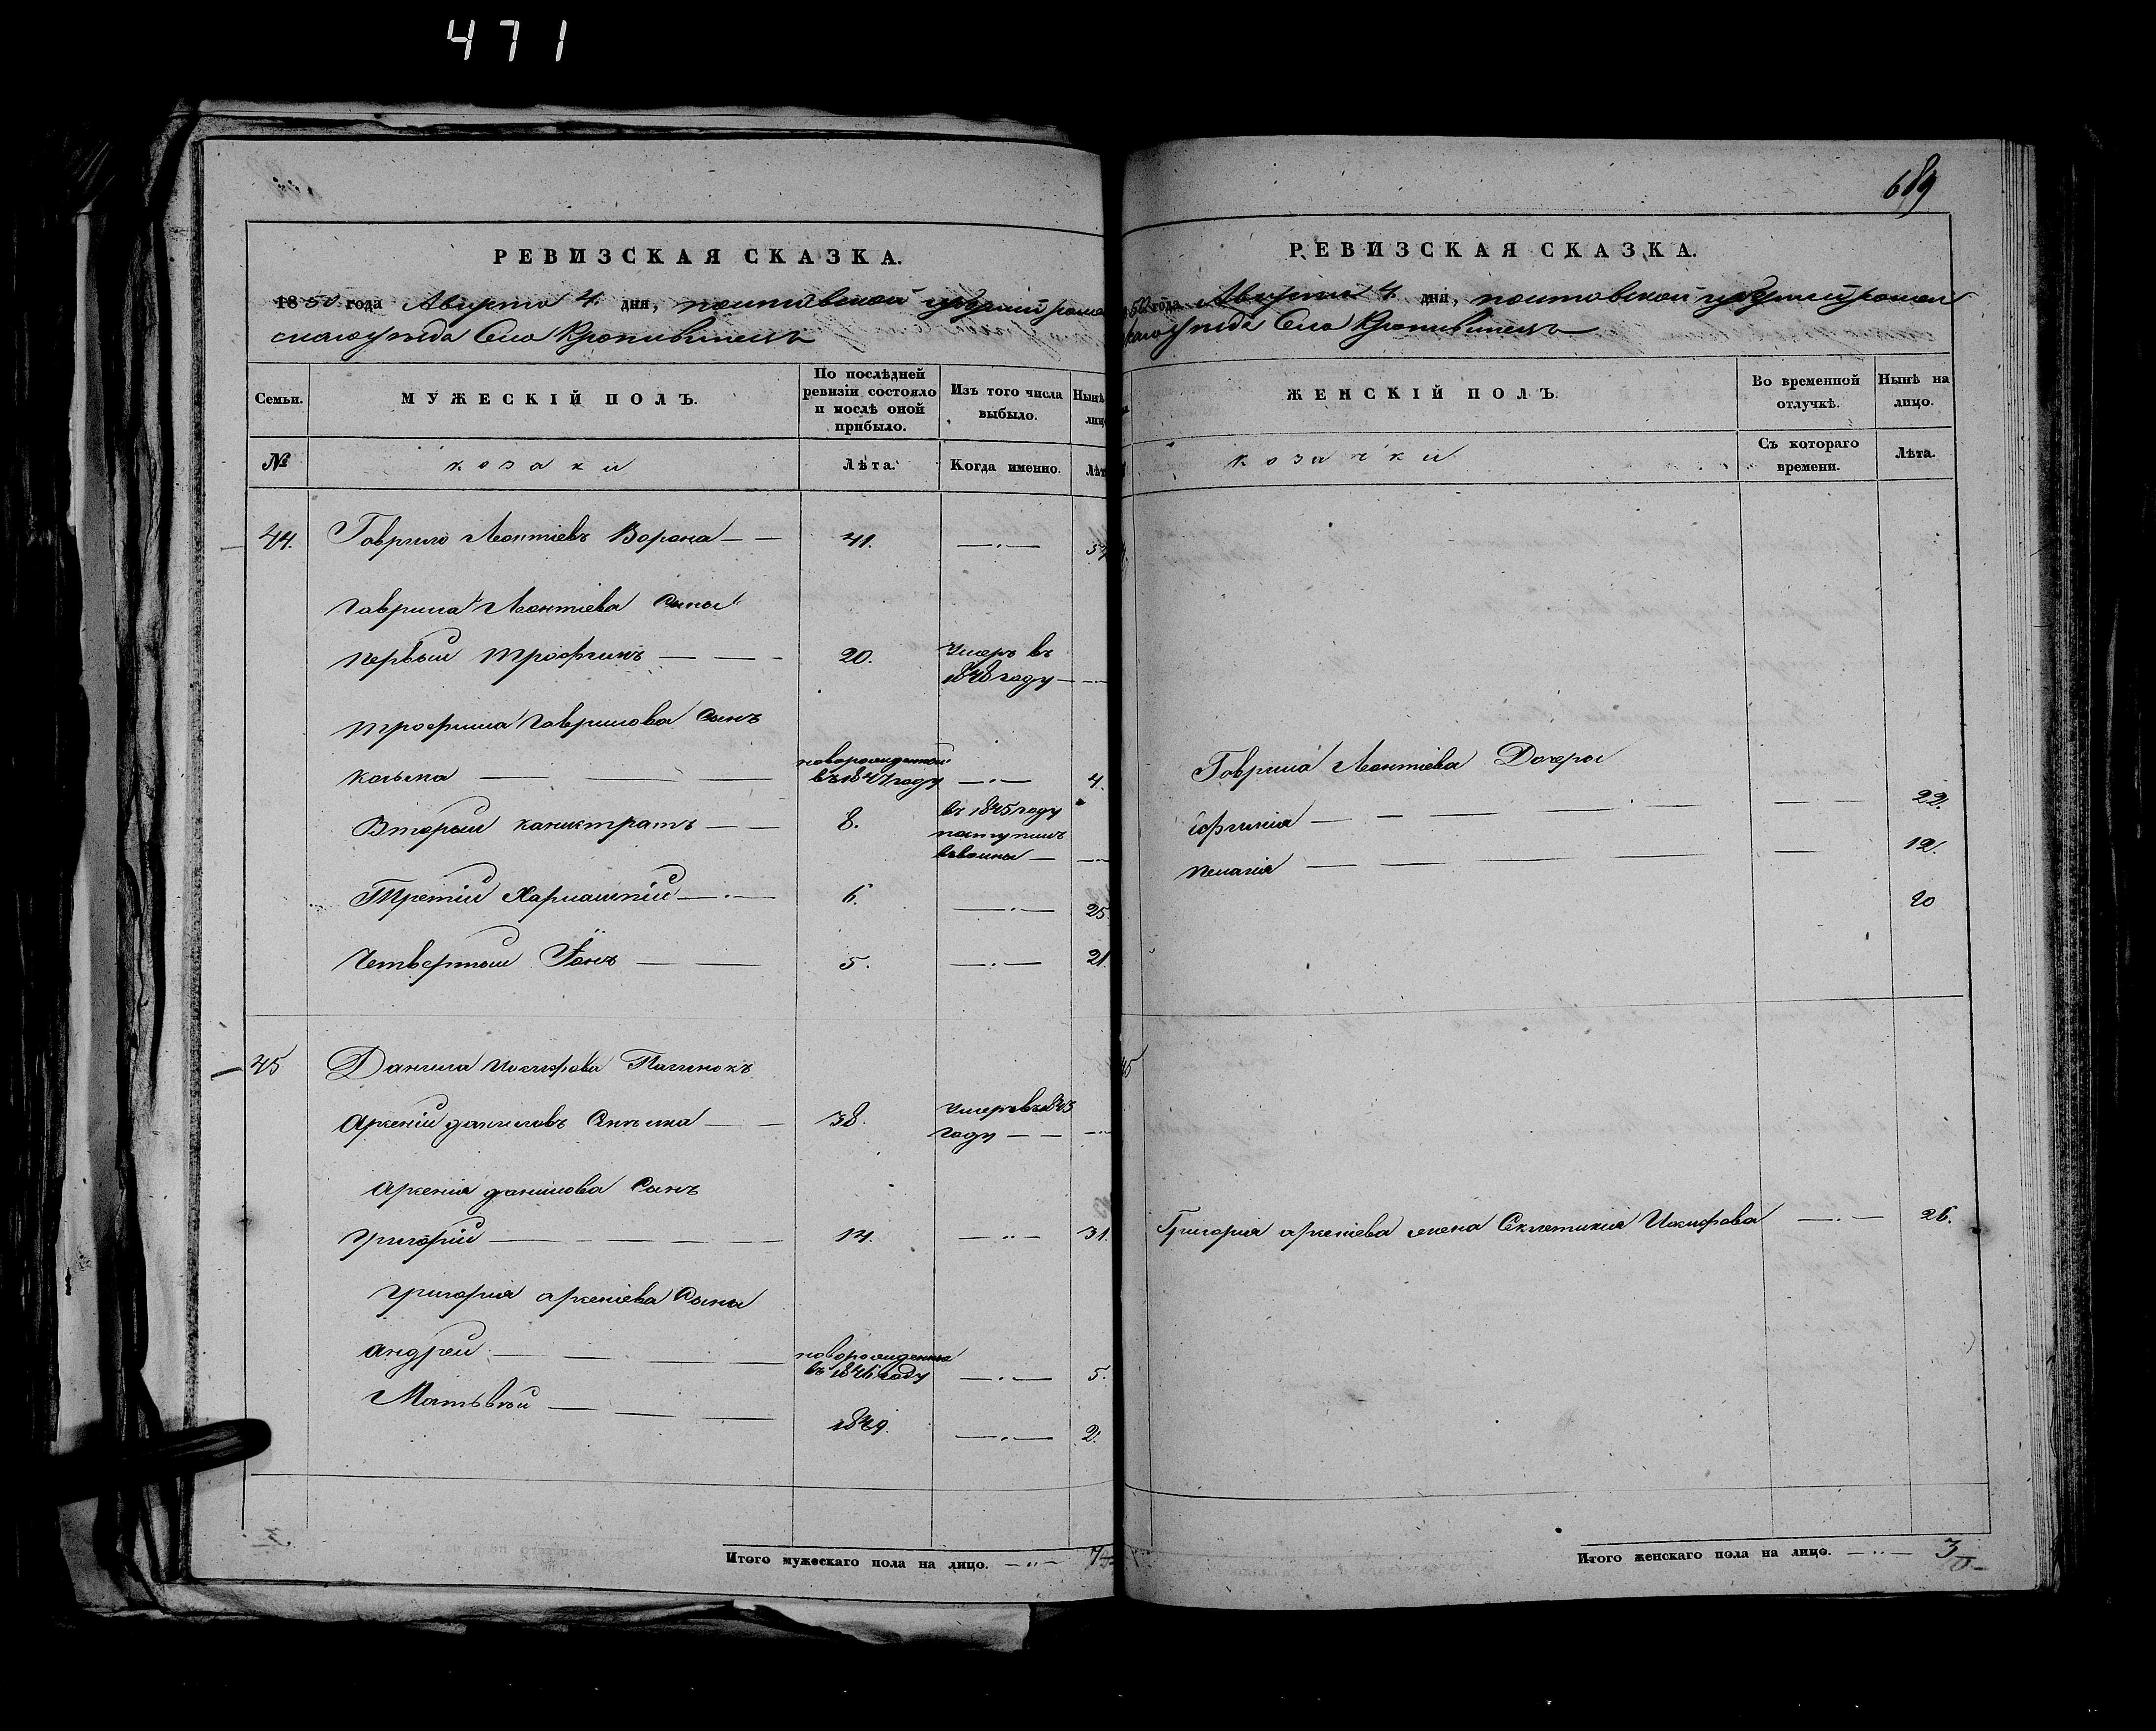 471
РЕВИЗСКАЯ СКАЗКА.
1850 года Августа 4. дня, полтавской губернии ромен
скаго уезда Село Кропивинецъ
Семьи.
МУЖЕСКІЙ ПОЛЪ.
По послѣдней
ревизіи состояло
и послѣ оной
прибыло.
Изъ того числа
выбыло.
Нынѣ
лицо
№
козаки
Лѣта.
Когда именно.
Лѣт
44. Гаврило Леонтіевъ Ворона 41.
Гаврила Леонтіева Сыны
первый трофимъ 20. Умеръ въ
1848 году
трофима Гаврилова Сынъ
козьма новорожденный
въ 1847 году 4.
Вторый калистратъ 8. въ 1845 году
поступилъ
Третій Харлампій 6. 25.
Четвертый 5. 21.
45 Данила Иосифова Пасинокъ
Арсеній даниловъ 38. Умеръ въ 1843
году
Арсенія данилова Сынъ
Григорій 14. 31.
Григорія арсеніева Сыны
андрей новорожденные
въ 1846 году 5.
Матьвѣй 1849. 2.
Итого мужескаго пола на лицо. 7
689
РЕВИЗСКАЯ СКАЗКА.
50 года Августа 4. дня, полтавской губерніи ромен
скаго уезда Село Кропивинецъ
ЖЕНСКІЙ ПОЛЪ.
Во временной
отлучкѣ.
Нынѣ на
лицо.
козачки
Съ котораго
времени.
Лѣта.
Гаврила Леонтіева Дочери
Ефимія 22.
пелагія 12.
20
45
Григорія арсеніева жена Секлетикія Иосифова 26.
Итого женскаго пола на лицо. 3